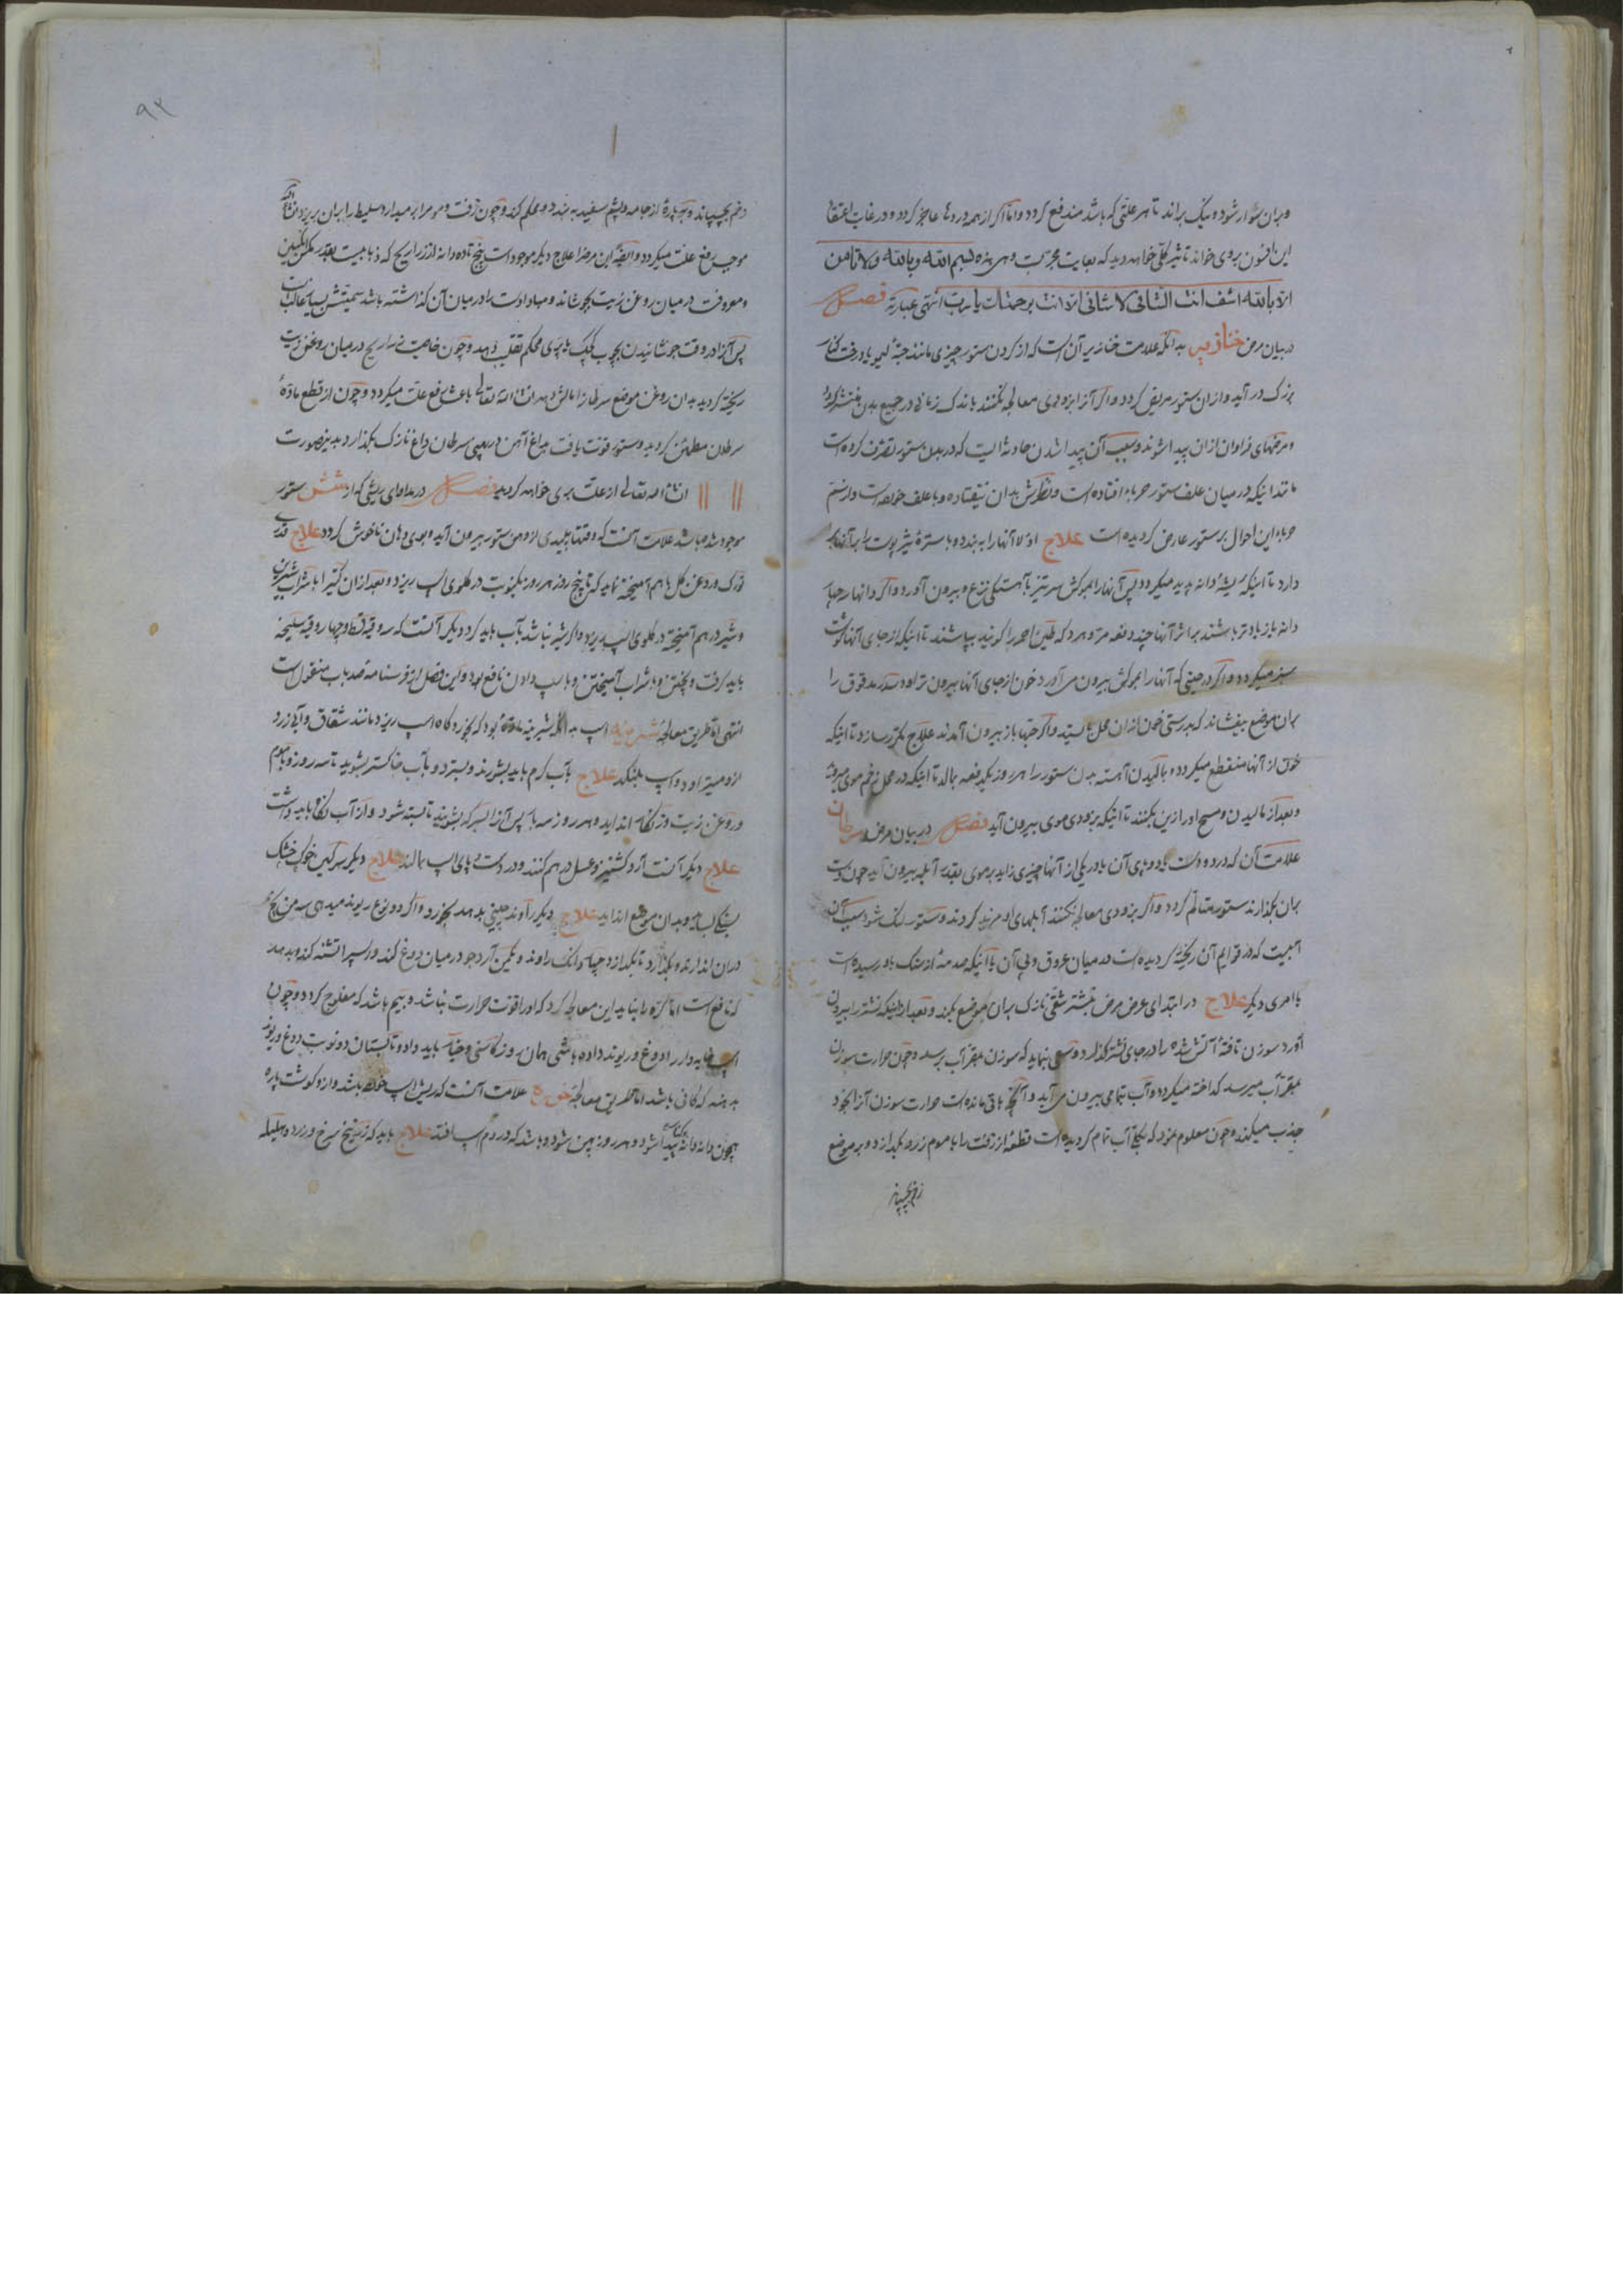 وبران سوار شود و نیک براند تا هر علتی که باشد مندفع گردد و اما اگر از همه دردها عاجز گردد و در غایت اعتقاد
این افسون بروی خواند تاثیر کلی خواهد دید که بغایت مجرب و هی هذه بسم الله وبالله ولا تامن
الا بالله اشف انت الشافی لا شافی الا انت برحمتک یا رب انتهی عبارته فصل
در بیان مرض خنازیر بدانکه علامت خنازیر آن است که از گردن ستور چیزی مانند حبهٔ لیمو یا درخت کنار
بزرک در آید و از ان ستور مریض گردد و اگر آنرا بزودی معالجه نکنند باندک زمانی در جمیع بدن منتشر گردد
و مرضهای فراوان از ان پیدا شوند و سبب آن پیدا شدن حادثه ایست که در بدن ستور تصرف کرده است
مانند اینکه در میان علف ستور حربا افتاده است و نظرش بدان نیفتاده و با علف خورده است و از سم
حربا این احوال بر ستور عارض گردیده است علاج اولا آنها را به بندد و با سترهٔ تیز پوست را بر آنها بر
دارد تا اینکه ریشهٔ دانه پدید میگردد پس آنها را بموکش سر تیز بآهستگی نزع و بیرون آورد و اگر دانها چهار
دانه یا زیادتر باشند بر اثر آنها چند دفعه مرّ و هرد که طین احمر را گویند بپاشند تا اینکه از جای آنها گوشت
سبز میگردد و اگر در حینی که آنها را بموکش بیرون می آورد خون از جای آنها بیرون تراود سدر مدقوق را
بران موضع بیفشاند که بدرستی خون از ان محل بایستد و اگر حبها باز بیرون آمدند علاج مکرر سازد تا اینکه
خون از آنها منقطع میگردد و بالیدن آهسته بدن ستور را هر روز یکدفعه بمالد تا اینکه در محل زخم موی میروید
و بعد از مالیدن و مسح او را زین بکنند تا اینکه بزودی موی بیرون آید فصل در بیان مرض سرطان
علامت آن که در دو دست یا دو پای آن یا در یکی از آنها چیزی زاید بر موی بقدر آبله بیرون آید چون دست
بران بگذارند ستور متالم گردد و اگر بزودی معالجه نکنند آبلهای او مزید گردند و ستور لنک شود سبب آن
آبیست که در قوایم آن ریخته گردیده است در میان عروق و پی آن یا آنیکه صدمهٔ از سنک باو رسیده است
یا امری دیگر علاج در ابتدای عرض مرض بنشتر شقی نازک بران موضع بکند و بعد از اینکه نشتر را بیرون
آورد سوزن تافتهٔ آتش شده را در جای نشتر گذارد و سعی بنماید که سوزن بقعر آب برسد و چون حرارت سوزن
بقعر آب میرسد گداخته میگردد و آب بتمامی بیرون می آید و آنچه باقی مانده است حرارت سوزن آنرا بخود
جذب میکند و چون معلوم نمود که بکلی آب تمام گردیده است قطعهٔ از زفت را با موم زرد بگدازد و بر موضع
زخم بچسپاند
۹۲
زخم بچسپاند و بر پارهٔ از جامه و پشم سفید به بندد و محکم کند و چون زفت و موم را برمیدارد سلیط را بران بریزد انشاء الله
موجب رفع علت میگردد و ایضا این مرض را علاج دیگر موجود است پنج تا ده دانه از ذراریح که ذبابیست بقدر مکس انگبین
و معروفست در میان روغن زیت بجوشاند و مبادا دست را در میان آن گذاشته باشد سمیتش بسیار غالب است
پس آنرا در وقت جوشانیدن بچوب کوچک یا پری محکم تقلب دهد و چون خاصیت ذراریح در میان روغن زیت
ریخته گردید بدان روغن موضع سرطان را مالش دهد انشاء الله تعالی باعث رفع علت میگردد و چون از قطع مادهٔ
سرطان مطمئن گردید و ستور قوت یافت بداغ آهن در پهنی سرطان داغ نازک بگذارد بدین صورت
انشاء الله تعالی از علت بری خواهد گردید فصل در مداوای ریشی که از شش ستور
موجود شده باشد علامت آنست که وقتها پلیدی از دهن ستور بیرون آید و بوی دهان ناخوش گردد علاج قدری
و روغن گل باهم آمیخته نماید که تا پنج روز هر روز یکنوبت در گلوی اسپ ریزد و بعد از ان کتیرا با شراب شیرین
و شیر درهم آمیخته در گلوی اسپ بریزد و اگر شیر نباشد بآب باید کرد دیگر آنست که سه وقیه قسط و چهار وقیه سلیخه
باید گرفت و پختن و با شراب آمیختن و باسپ دادن نافع بود و این فصل از فرسنامه صد باب منقول است
انتهی اما طریق معالجه شیرینه اسپ بدانکه شیرینه مادهٔ بود که بخورد گاه اسپ ریزد مانند شقاق و آبی زرد
ازو میتراود و اسپ بلنکد علاج بآب گرم باید بشویند و بسترد و بآب خاکستر بشوید تا سه روز و با موم
و روغن زیت و زنکار انداید و هر روز سه بار پس آنرا بسرکه بشویند تا بسته شود و از آب نگاه باید داشت
علاج دیگر آنست آرد کشنیز و عسل درهم کنند و در دست و پای اسپ مالند علاج دیگر سرگین خوک خشک
نیک بساید و بدان موضع انداید علاج دیگر راوند چینی بدهد بخورد و اگر دوغ ریوند میدهی سه من
دران اندازند و بگذارد تا بگدازد و چهار دانک راوند و یکمن آرد جو در میان دوغ کند و اسپ را تشنه کند و بدهد
که نافع است اما کره را نباید این معالجه کرد که او را قوت حرارت نباشد و بیم باشد که مفلوج گردد و چون
اسپ مایه دار را دوغ و ریوند داده باشی همان روز کاسنی و خیار باید داد و تابستان دو نوبت دوغ و ریوند
بدهند که کافی باشد اما طریق معالجه خوره علامت آنست که ریش اسپ خورده باشد و از و گوشت پاره
همچون دانه دانه پیدا شود و هر روز پهن شود و باشد که در دم اسپ افتد علاج باید که زرنیخ سرخ و زرد و هلیله